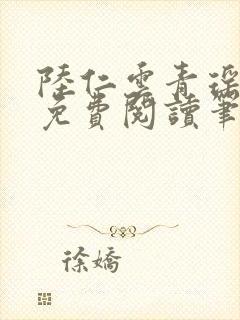 陸仁雲青瑤
免費閱讀筆
徐嬌